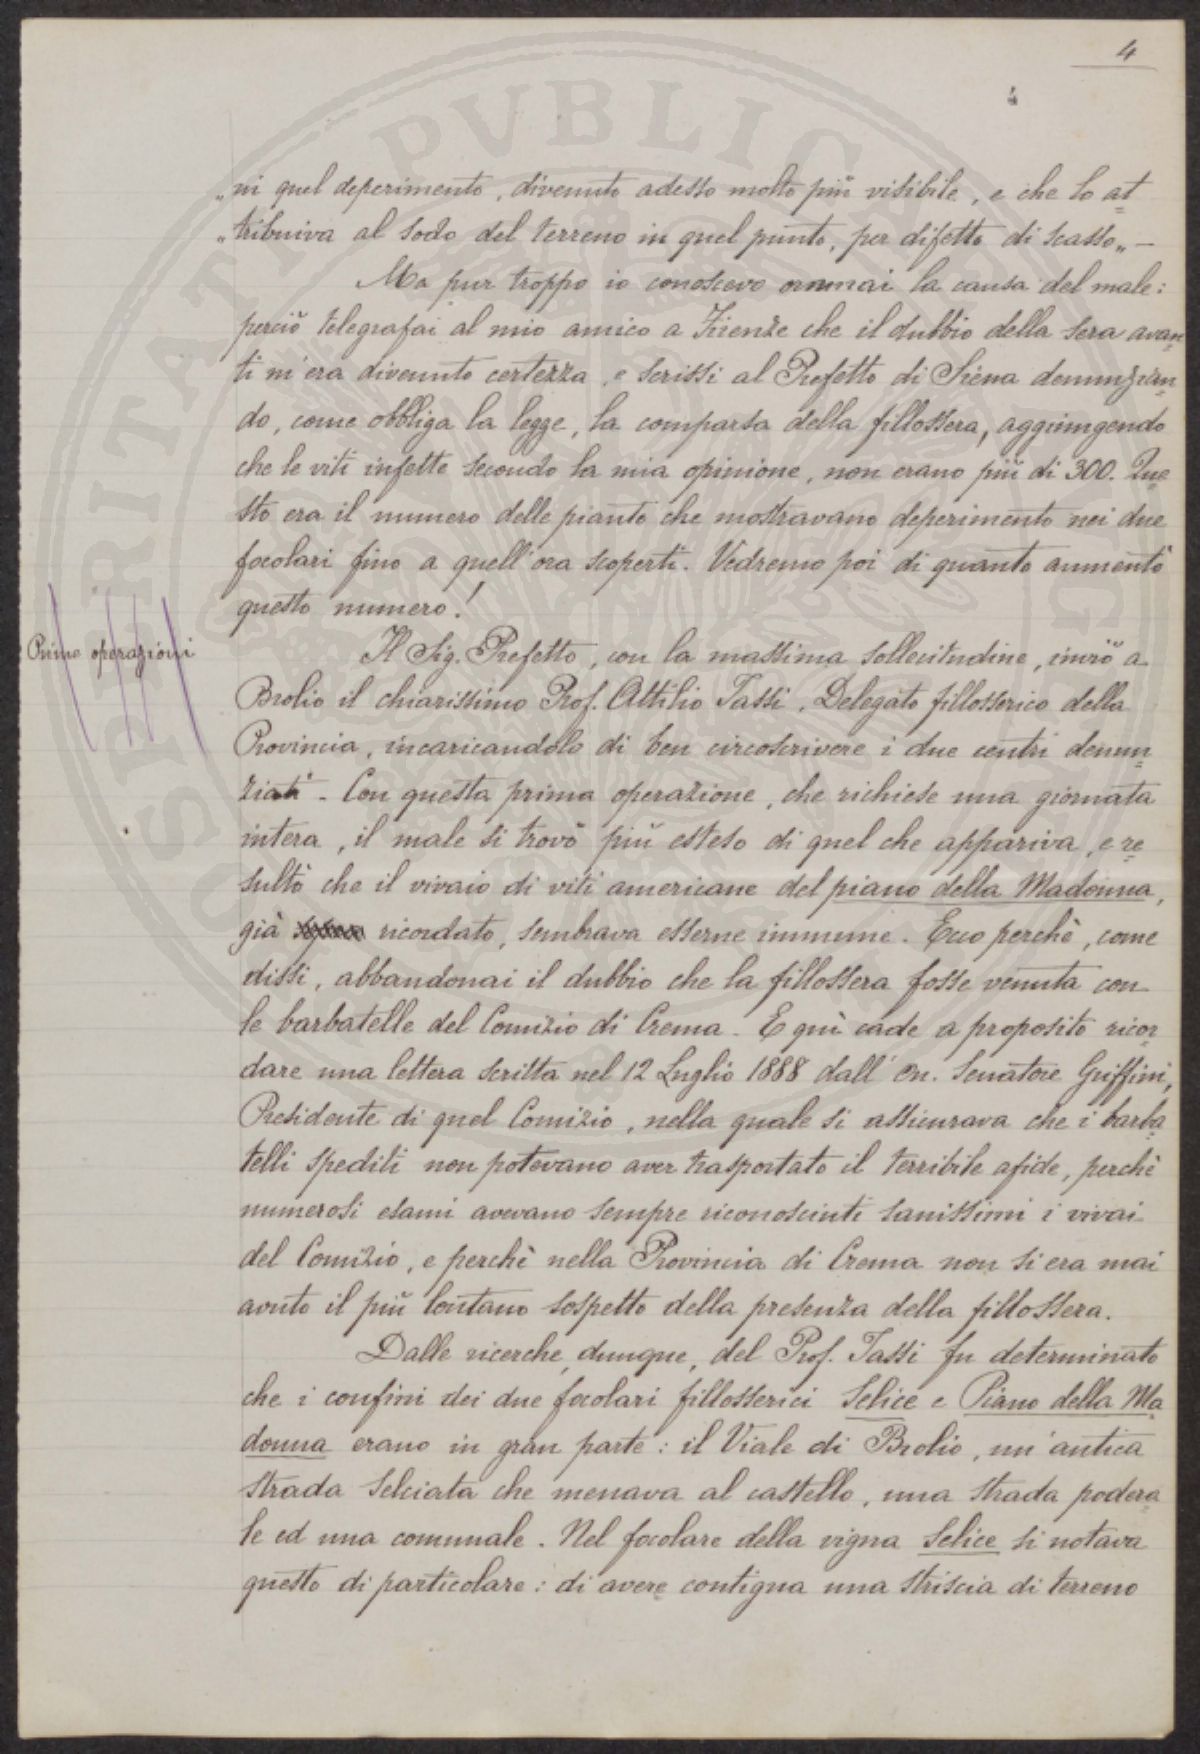 4
4
„ni quel deperimento, divenuto adesso molto più visibile, e che lo at=
„tribuiva al sodo del terreno in quel punto, per difetto di scasso„ —
Ma pur troppo io conoscevo ormai la causa del male:
perciò telegrafai al mio amico a Firenze che il dubbio della sera avan=
ti m'era divenuto certezza, e scrissi al Prefetto di Siena denunzian=
do, come obbliga la legge, la comparsa della fillossera, aggiungendo
che le viti infette secondo la mia opinione, non erano più di 300. Que=
sto era il numero delle piante che mostravano deperimento nei due
focolari fino a quell'ora scoperti. Vedremo poi di quanto aumentò
questo numero!
Prime operazioni
Il Sig. Prefetto, con la massima sollecitudine, inviò a
Brolio il chiarissimo Prof. Attilio Tassi, Delegato fillosserico della
Provincia, incaricandolo di ben circoscrivere i due centri denun=
ziati - Con questa prima operazione, che richiese una giornata
intera, il male si trovò più esteso di quel che appariva, e re=
sultò che il vivaio di viti americane del piano della Madonna,
già ricordato, sembrava esserne immune. Ecco perchè, come
dissi, abbandonai il dubbio che la fillossera fosse venuta con
le barbatelle del Comizio di Crema. E quì cade a proposito ricor=
dare una lettera scritta nel 12 Luglio 1888 dall' On. Senatore Griffini,
Presidente di quel Comizio, nella quale si assicurava che i barba=
telli spediti non potevano aver trasportato il terribile afide, perchè
numerosi esami avevano sempre riconosciuti sanissimi i vivai
del Comizio, e perchè nella Provincia di Crema non si era mai
avuto il più lontano sospetto della presenza della fillossera.
Dalle ricerche, dunque, del Prof. Tassi fu determinato
che i confini dei due focolari fillosserici Selice e Piano della Ma=
donna erano in gran parte: il Viale di Brolio, un'antica
strada selciata che menava al castello, una strada podera=
le ed una comunale. Nel focolare della vigna Selice si notava
questo di particolare: di avere contigua una striscia di terreno